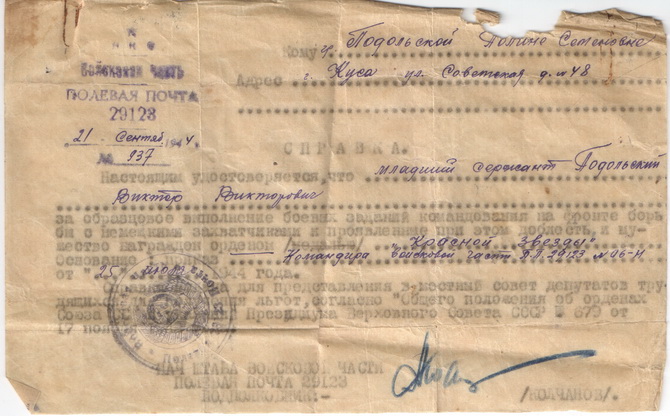 НКО
Войсковая часть
ПОЛЕВАЯ ПОЧТА
29123
21 Сентяб 1944
№ 937
Кому гр. Подольской Полине Семеновне
Адрес г. Куса ул. Советская д. № 48
СПРАВКА.
Настоящим удостоверяется, что младший сержант Подольский
Виктор Викторович
за образцовое выполнение боевых заданий командования на фронте борь
бы с немецкими захватчиками и проявленные при этом доблесть и му
жество награжден орденом "Красной Звезды"
Основание: Приказ Командира войсковой части П.П. 29123 № 46-Н
от "25" июля 1944 года.
Справка для представления в местный совет депутатов тру
дящихся для льгот, согласно "Общего положения об орденах
Союза Президиума Верховного Совета СССР № 679 от
17
НАЧ ШТАБА ВОЙСКОВОЙ ЧАСТИ
ПОЛЕВАЯ ПОЧТА 29123
ПОДПОЛКОВНИК:- /КОЛЧАНОВ/.